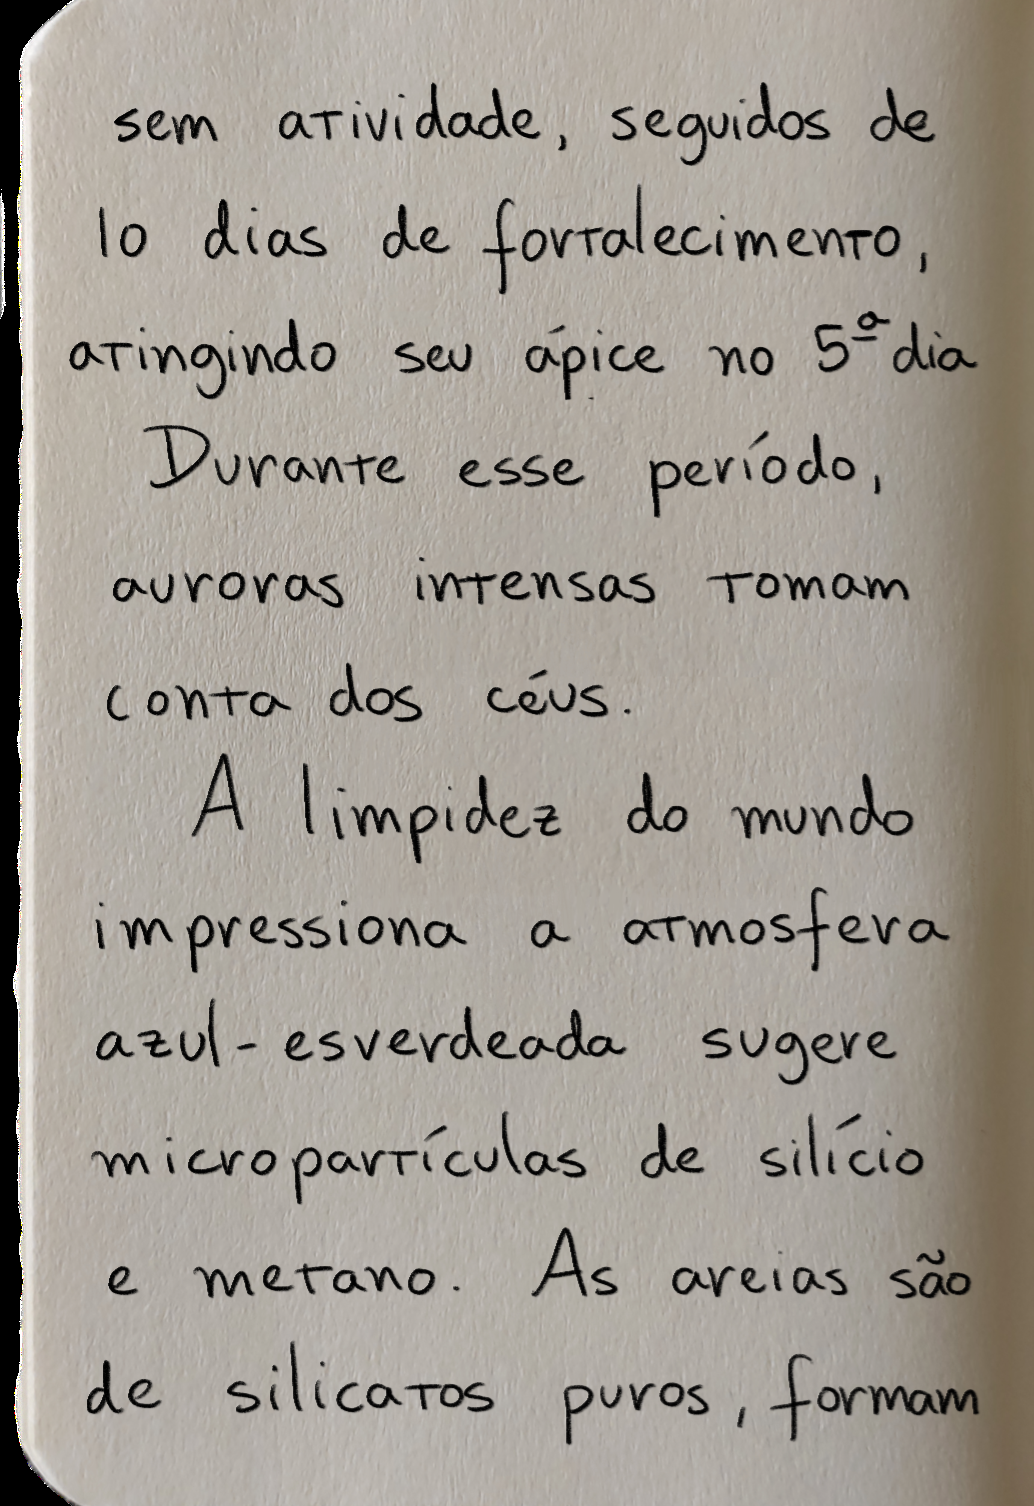 sem atividade, seguidos de
10 dias de fortalecimento,
atingindo seu ápice no 5ª dia
Durante esse período,
auroras intensas tomam
conta dos céus.
A limpidez do mundo
impressiona a atmosfera
azul-esverdeada sugere
micropartículas de silício
e metano. As areias são
de silicatos puros, formam